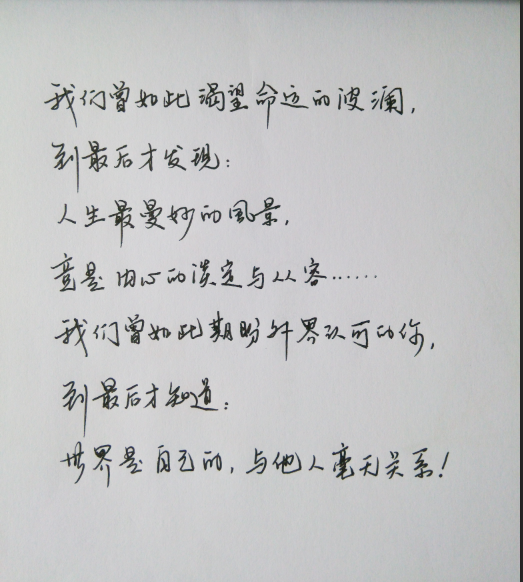 我们曾如此渴望命运的波澜，
到最后才发现：
人生最曼妙的风景，
竟是内心的淡定与从容……
我们曾如此期盼外界认可的你，
到最后才知道：
世界是自己的，与他人毫无关系！